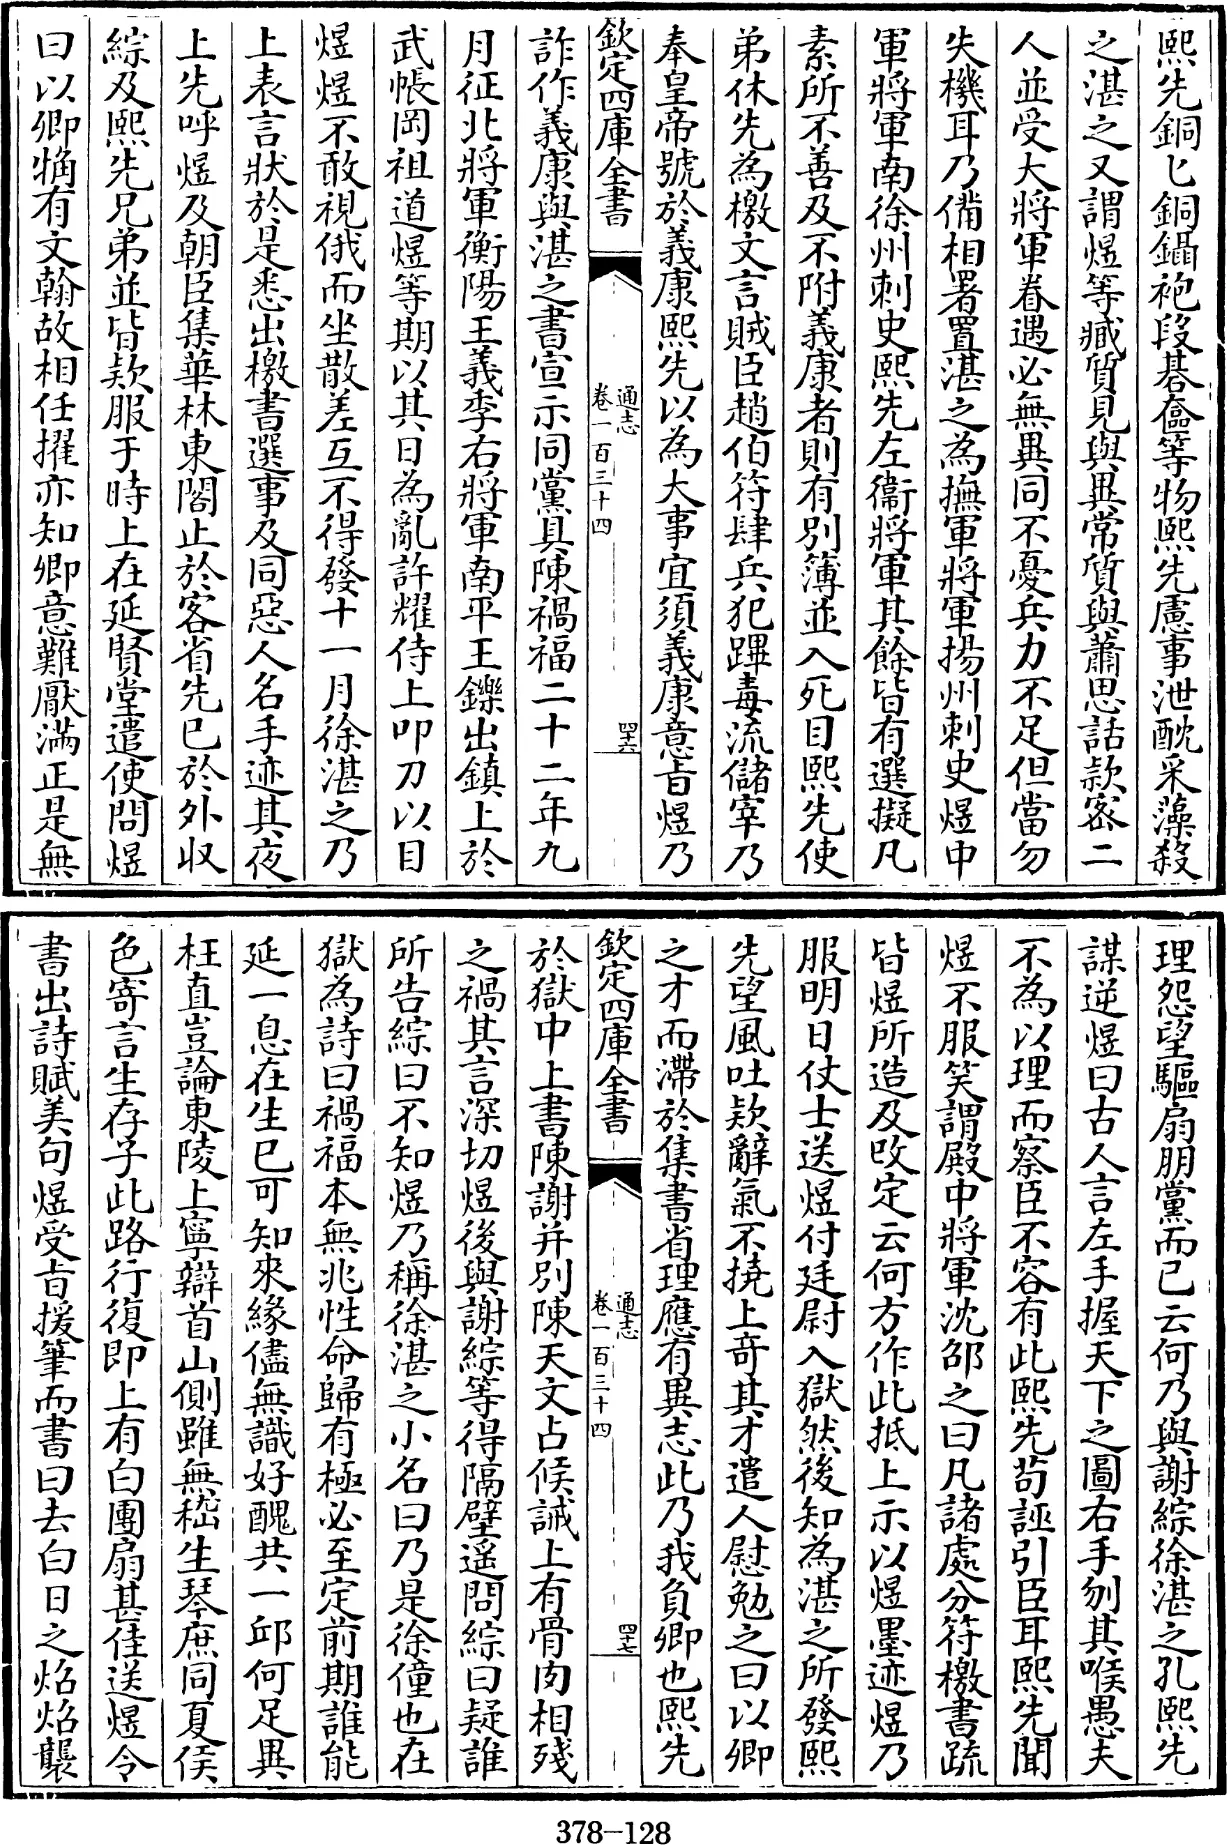 熙先銅匕銅鑷袍段碁奩等物熙先慮事泄酖采藻殺
之湛之又謂煜等臧質見與異常質與蕭思話款密二
人並受大將軍眷遇必無異同不憂兵力不足但當勿
失機耳乃備相署置湛之為撫軍將軍揚州刺史煜中
軍將軍南徐州刺史熙先左衞將軍其餘皆有選擬凡
素所不善及不附義康者則有別簿並入死目熙先使
弟休先為檄文言賊臣趙伯符肆兵犯蹕毒流儲宰乃
奉皇帝號於義康熙先以為大事宜須義康意旨煜乃
欽定四庫全書
通志
卷一百三十四
四十六
詐作義康與湛之書宣示同黨具陳禍福二十二年九
月征北將軍衡陽王義季右將軍南平王鑠出鎮上於
武帳岡祖道煜等期以其日為亂許耀侍上叩刀以目
煜煜不敢視俄而坐散差互不得發十一月徐湛之乃
上表言狀於是悉出檄書選事及同惡人名手迹其夜
上先呼煜及朝臣集華林東閣止於客省先已於外収
綜及熙先兄弟並皆欵服于時上在延賢堂遣使問煜
曰以卿觕有文翰故相任擢亦知卿意難厭滿正是無
理怨望驅扇朋黨而已云何乃與謝綜徐湛之孔熙先
謀逆煜曰古人言左手握天下之圖右手刎其喉愚夫
不為以理而察臣不容有此熙先茍誣引臣耳熙先聞
煜不服笑謂殿中將軍沈邵之曰凡諸處分符檄書疏
皆煜所造及改定云何方作此抵上示以煜墨迹煜乃
服明日仗士送煜付廷尉入獄然後知為湛之所發熙
先望風吐欵辭氣不撓上奇其才遣人慰勉之曰以卿
之才而滯於集書省理應有異志此乃我負卿也熙先
欽定四庫全書
通志
卷一百三十四
四十七
於獄中上書陳謝并別陳天文占候誡上有骨肉相殘
之禍其言深切煜後與謝綜等得隔壁遥問綜曰疑誰
所告綜曰不知煜乃稱徐湛之小名曰乃是徐僮也在
獄為詩曰禍福本無兆性命歸有極必至定前期誰能
延一息在生已可知來緣儘無識好醜共一邱何足異
枉直豈論東陵上寧辯首山側雖無嵇生琴庶同夏侯
色寄言生存子此路行復即上有白團扇甚佳送煜令
書出詩賦美句煜受旨援筆而書曰去白日之焰焰襲
378-128